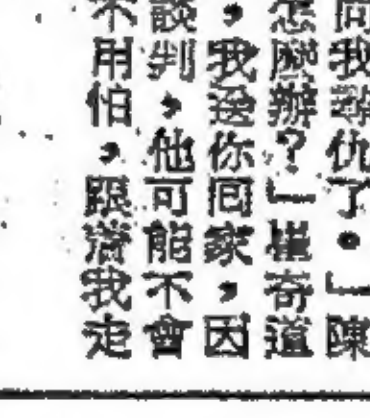 問我尋仇了。」陳
怎麼辦？」崔奇道
，我送你回家，因
談判，他可能不會
不用怕，跟著我走